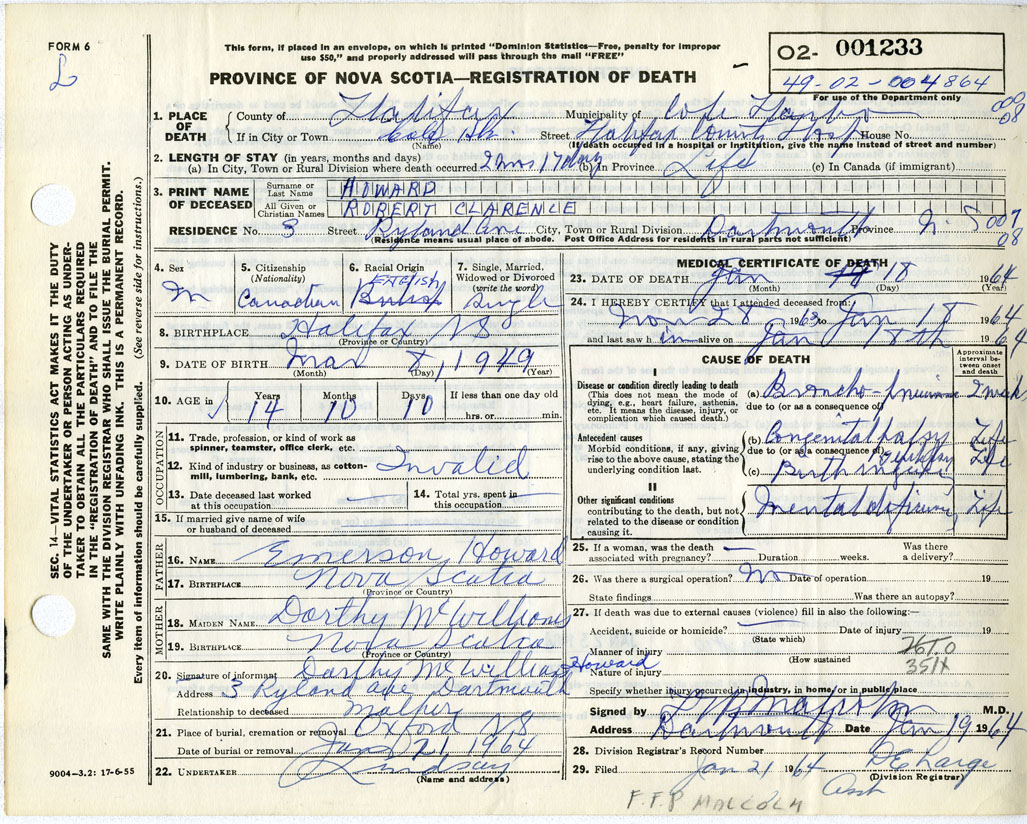 FORM 6
L
This form, if placed in an envelope, on which is printed "Dominion Statistics—Free, penalty for improper
use $50," and properly addressed will pass through the mail "FREE"
PROVINCE OF NOVA SCOTIA—REGISTRATION OF DEATH
02- 001233
49-02-004864
For use of the Department only
000
08
1. PLACE OF DEATH
County of Halifax Municipality of Cole Harbor
If in City or Town Cole Hb. Street Halifax County Hosp House No.
(Name) (If death occurred in a hospital or institution, give the name instead of street and number)
2. LENGTH OF STAY (in years, months and days)
(a) In City, Town or Rural Division where death occurred 2 mos 17 days (b) In Province Life (c) In Canada (if immigrant)
3. PRINT NAME OF DECEASED
Surname or Last Name HOWARD
All Given or Christian Names ROBERT CLARENCE
RESIDENCE No. 3 Street Ryland Ave City, Town or Rural Division Dartmouth Province N S
(Residence means usual place of abode. Post Office Address for residents in rural parts not sufficient)
007
08
4. Sex M
5. Citizenship (Nationality) Canadian
6. Racial Origin ENGLISH British
7. Single, Married, Widowed or Divorced (write the word) Single
8. BIRTHPLACE Halifax NS
(Province or Country)
9. DATE OF BIRTH Mar 8, 1949
(Month) (Day) (Year)
10. AGE in Years 14 Months 10 Days 10 If less than one day old
hrs. or min.
OCCUPATION
11. Trade, profession, or kind of work as
spinner, teamster, office clerk, etc.
12. Kind of industry or business, as cotton-
mill, lumbering, bank, etc. Invalid
13. Date deceased last worked
at this occupation
14. Total yrs. spent in
this occupation
15. If married give name of wife
or husband of deceased
FATHER
16. NAME Emerson Howard
17. BIRTHPLACE Nova Scotia
(Province or Country)
MOTHER
18. MAIDEN NAME Dorthy McWilliams
19. BIRTHPLACE Nova Scotia
(Province or Country)
20. Signature of informant Dorthy McWilliams Howard
Address 3 Ryland Ave Dartmouth
Relationship to deceased Mother
21. Place of burial, cremation or removal Oxford NS
Date of burial or removal Jan 21, 1964
22. UNDERTAKER Lindsay
(Name and address)
9004—3.2: 17-6-55
MEDICAL CERTIFICATE OF DEATH
23. DATE OF DEATH Jan 18 1964
(Month) (Day) (Year)
24. I HEREBY CERTIFY that I attended deceased from:
Nov 28 1963 to Jan 18 1964
and last saw h im alive on Jan 18th 1964
CAUSE OF DEATH
Approximate interval between onset and death
I
Disease or condition directly leading to death
(This does not mean the mode of
dying, e.g., heart failure, asthenia,
etc. It means the disease, injury, or
complication which caused death.)
(a) Broncho-pneumonia 2 weeks
due to (or as a consequence of)
Antecedent causes
Morbid conditions, if any, giving
rise to the above cause, stating the
underlying condition last.
(b) Congenital palsy Life
due to (or as a consequence of)
(c) Birth injury Life
II
Other significant conditions
contributing to the death, but not
related to the disease or condition
causing it.
Mental deficiency Life
25. If a woman, was the death
associated with pregnancy? Duration weeks. Was there
a delivery?
26. Was there a surgical operation? No Date of operation 19
State findings Was there an autopsy?
27. If death was due to external causes (violence) fill in also the following:—
Accident, suicide or homicide? Date of injury 19
(State which)
Manner of injury
(How sustained
Nature of injury
760.0
351X
Specify whether injury occurred in industry, in home, or in public place
Signed by M.D.
Address Dartmouth Date Jan 19 1964
28. Division Registrar's Record Number
29. Filed Jan 21 1964
(Division Registrar)
Asst
F.F.P MALCOLM
SEC. 14—VITAL STATISTICS ACT MAKES IT THE DUTY
OF THE UNDERTAKER OR PERSON ACTING AS UNDER-
TAKER TO OBTAIN ALL THE PARTICULARS REQUIRED
IN THE "REGISTRATION OF DEATH" AND TO FILE THE
SAME WITH THE DIVISION REGISTRAR WHO SHALL ISSUE THE BURIAL PERMIT.
WRITE PLAINLY WITH UNFADING INK. THIS IS A PERMANENT RECORD.
Every item of information should be carefully supplied. (See reverse side for instructions.)